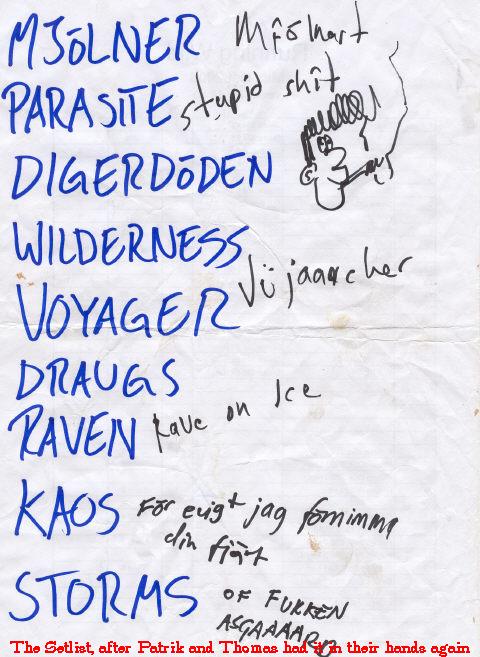 MJÖLNER Mjölnart
PARASITE stupid shit
DIGERDÖDEN
WILDERNESS
VOYAGER Vüjaaarcher
DRAUGS
RAVEN Rave on Ice
KAOS För evigt jag förnimma
din fjärt
STORMS OF FUKKEN
ASGAAAARD
The Setlist, after Patrik and Thomas had it in their hands again